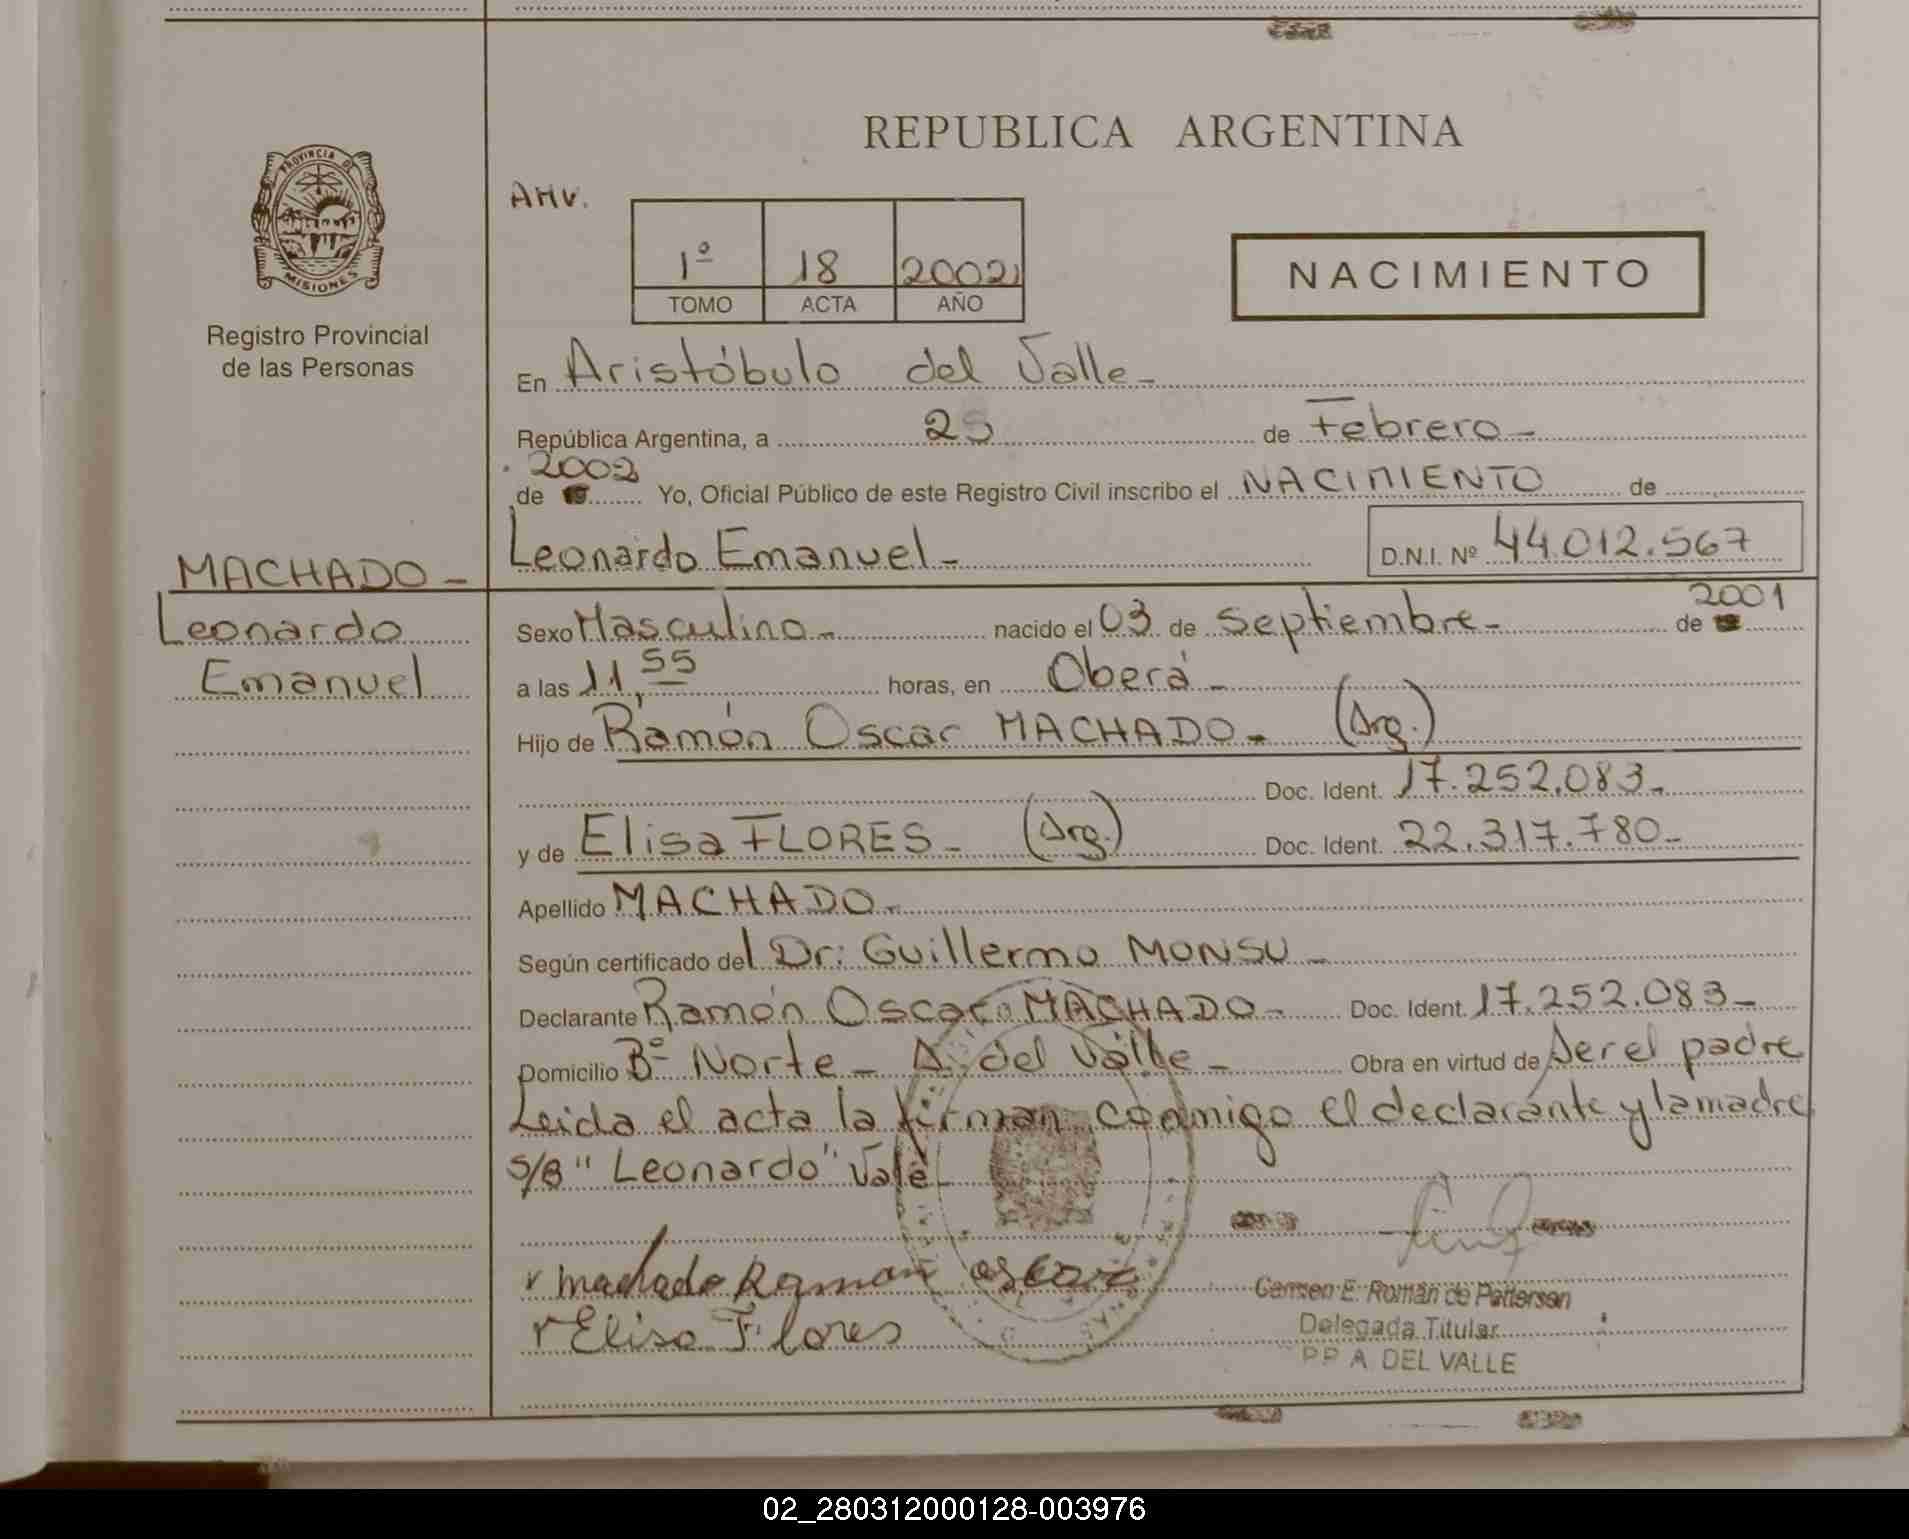 REPUBLICA ARGENTINA
PROVINCIA DE
MISIONES
Registro Provincial
de las Personas
AMV.
1º 18 2002
TOMO ACTA AÑO
NACIMIENTO
En Aristóbulo del Valle-
República Argentina, a 25 de Febrero-
2002
de Yo, Oficial Público de este Registro Civil inscribo el NACIMIENTO de
Leonardo Emanuel- D.N.I. Nº 44.012.567
MACHADO-
Leonardo
Emanuel
2001
Sexo Masculino- nacido el 03 de Septiembre- de
a las 11,55 horas, en Oberá-
Hijo de Ramón Oscar MACHADO- (Arg.)
Doc. Ident. 17.252.083-
y de Elisa FLORES- (Arg.) Doc. Ident. 22.317.780-
Apellido MACHADO-
Según certificado del Dr: Guillermo MONSU-
Declarante Ramón Oscar MACHADO- Doc. Ident. 17.252.083-
Domicilio Bº Norte- A. del Valle- Obra en virtud de Ser el padre
Leida el acta la firman conmigo el declarante y la madre
S/B "Leonardo" Vale-
Machado Ramon oscar
Elisa Flores
Carmen E. Román de Patterson
Delegada Titular
A DEL VALLE
02_280312000128-003976